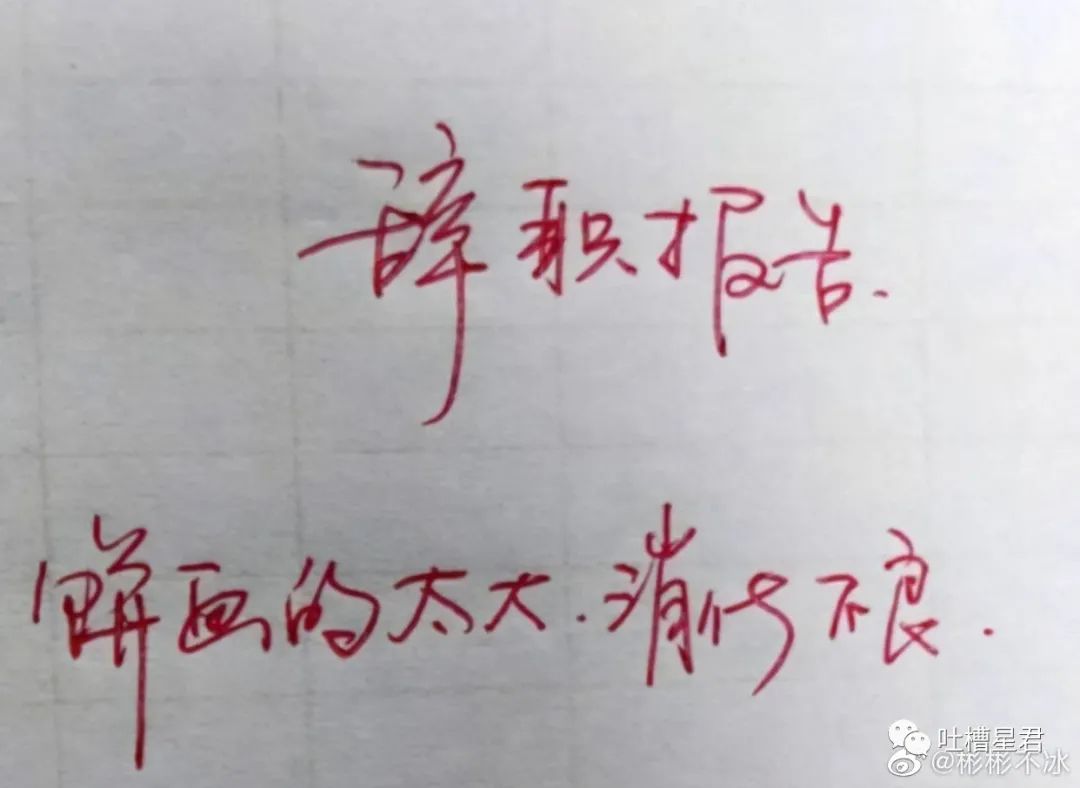 辞职报告.
饼画的太大.消化不良.
吐槽星君
@彬彬不冰